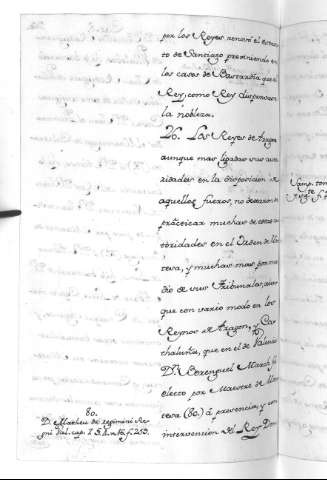 por los Reyes renovó el
to de Santiago previniendo en
los casos de Bastardia que el
Rey, como Rey dispensara
la nobleza.
26. Los Reyes de Aragon
aunque mas ligadas sus auto
ridades en la disposicion de
aquellos fueros, no dexaron de
practicar muchas de estas au
toridades en el Orden de Mon
tesa, y muchas mas por me
dio de sus Tribunales, aun
que con vario modo en los
Reynos de Aragon, y Ca
thaluña, que en el de Valencia
Dn. Berenguel March fue
electo por Maestre de Mon
tesa (80.) á prevencia, y con
intervencion del Rey Don
80.
D. Matheu de regimini Re
gni Val. cap.